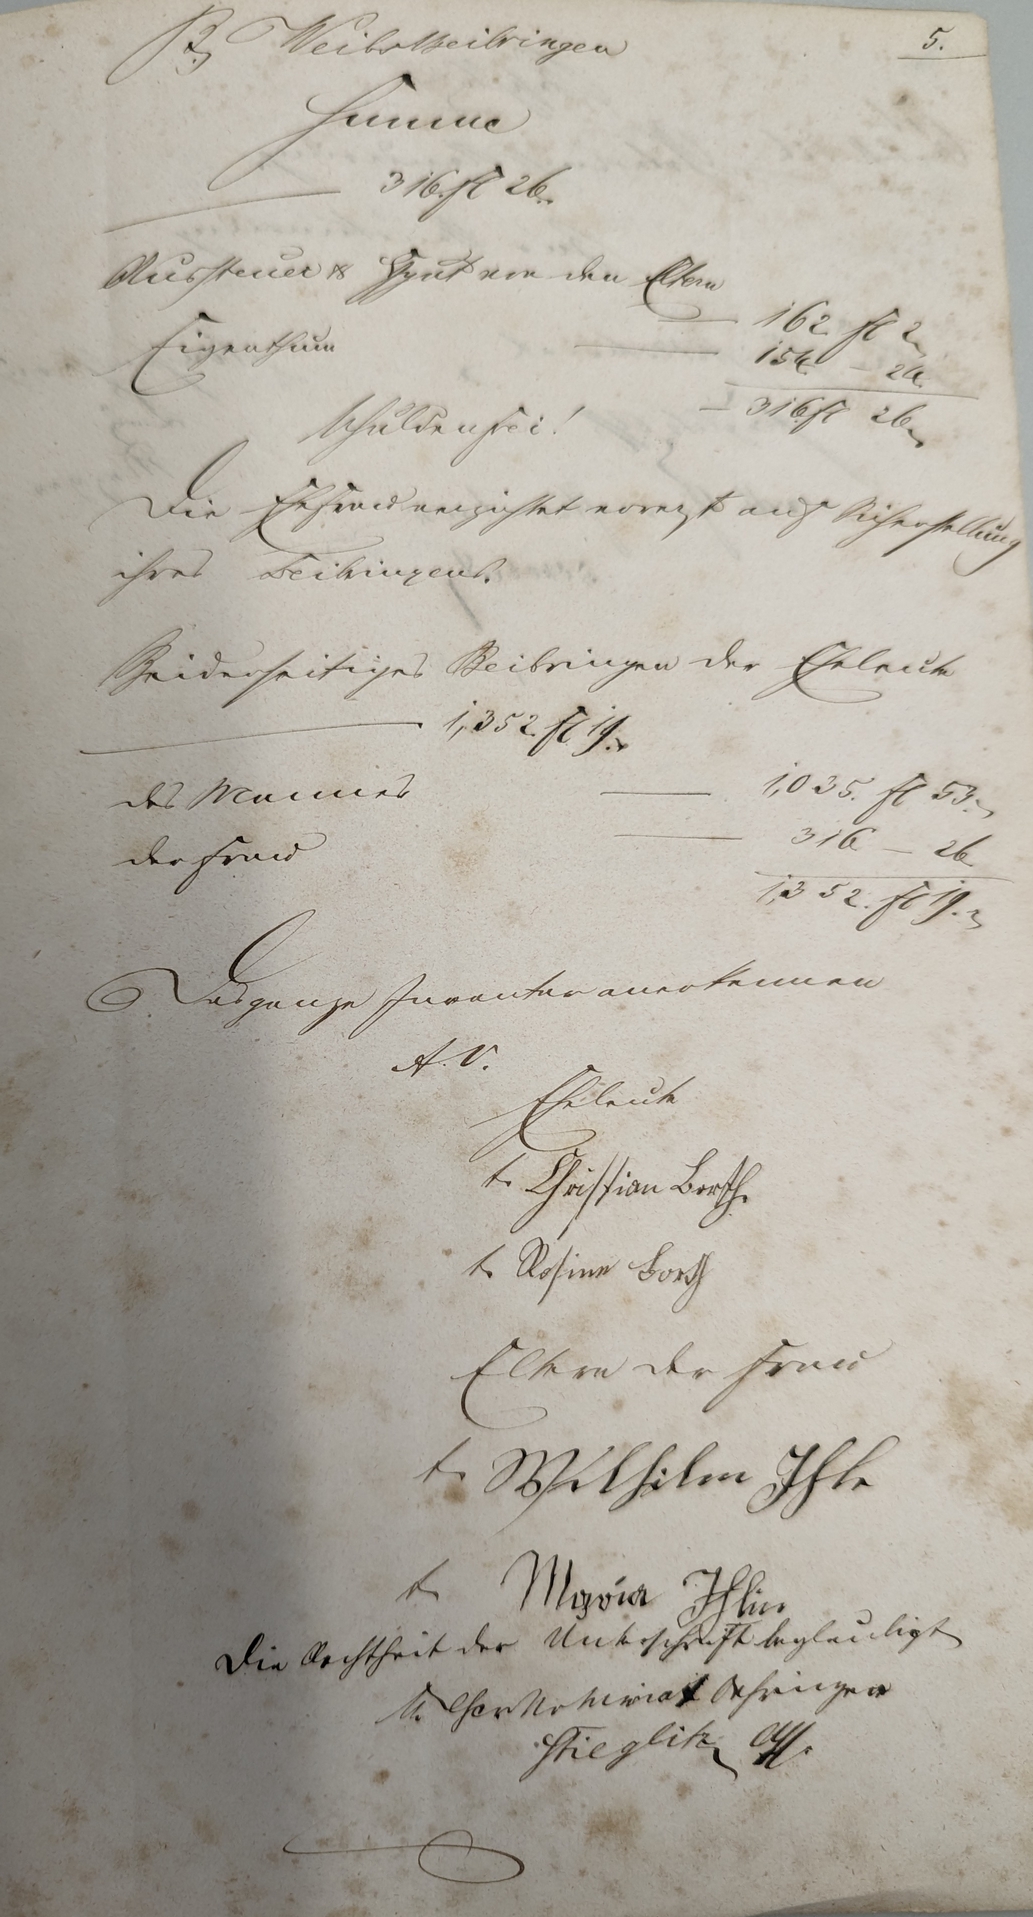 5.
Weibsbeibringen
Summe
316. fl 26.
Aussteuer & Hgut von den Eltern
162 fl 2
Eigenthum 154. – 24.
316 fl 26
Schuldenfrei!
Die Ehefrau verzichtet vorerst auf Sicherstellung
ihres Beibringens.
Beiderseitiges Beibringen der Eheleute
1,352 fl 19.
des Mannes 1,035. fl 53.
der Frau 316 – 26
1,352. fl 19.
Das ganze Inventar anerkennen
A. V.
Eheleute
t. Christian Borth.
t. Rosine Borth
Eltern der Frau
t. Wilhelm Ihle
t. Maria Ihlin
Die Aechtheit der Unterschrift beglaubigt
K. Gerichtsnotariat Oehringen
Stieglitz Ass.